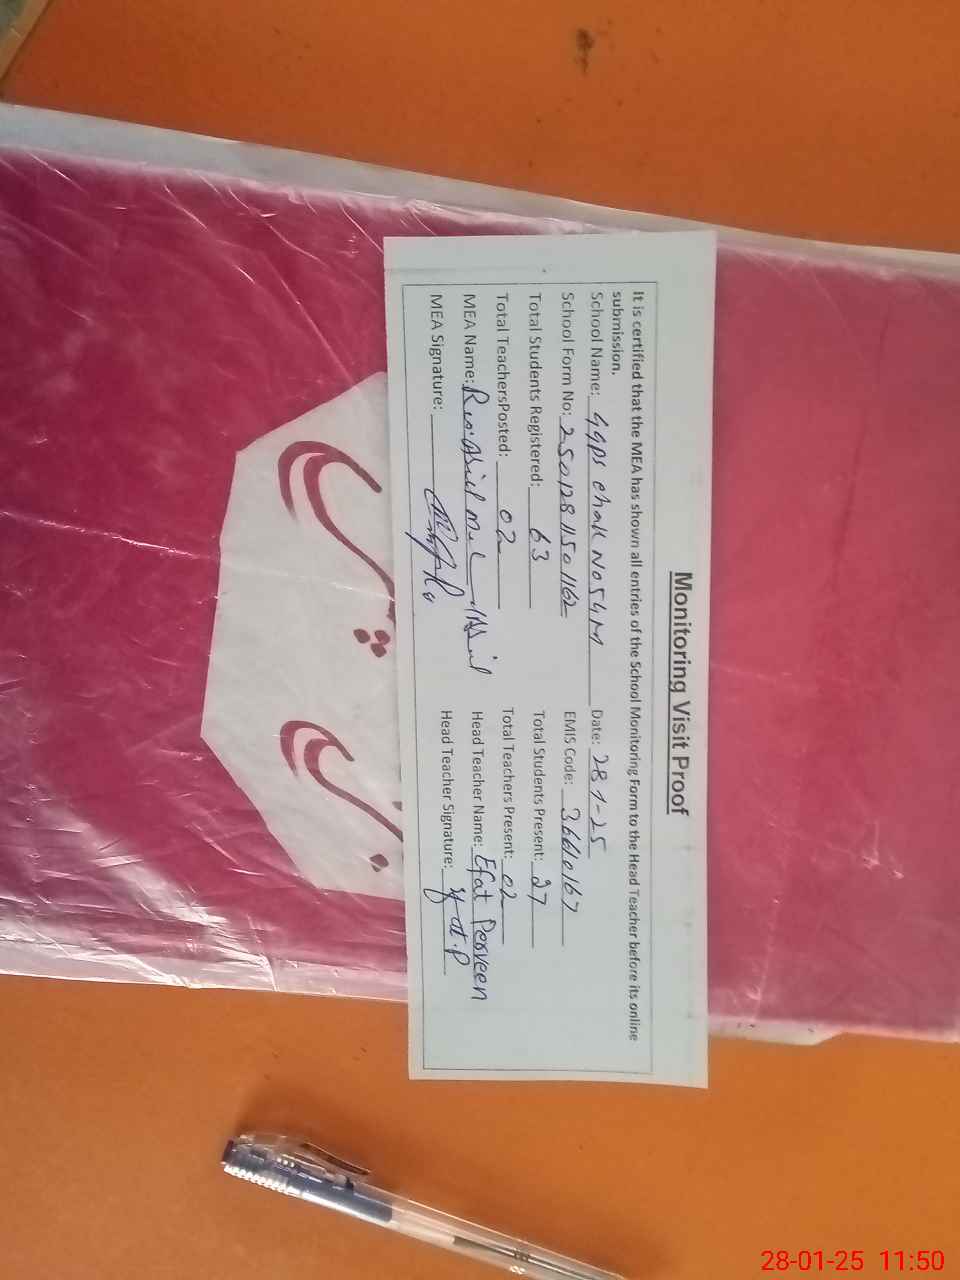 Monitoring Visit Proof
It is certified that the MEA has shown all entries of the School Monitoring Form to the Head Teacher before its online
submission.
School Name: GGPS chak No 54M Date: 28-1-25
School Form No: Total Students Registered: 63 EMIS Code: 36610167
Total Students Present: 27
Total TeachersPosted: 02 Total Teachers Present: 02
MEA Name: Head Teacher Name: Efat Perveen
MEA Signature: Head Teacher Signature: Efat.P
28-01-25 11:50